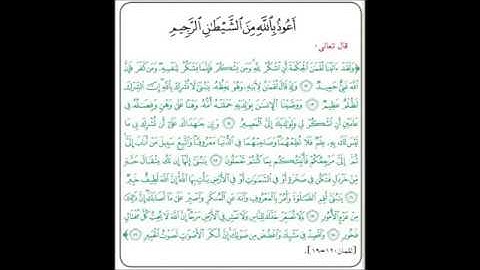 أَعُوذُ بِاللَّهِ مِنَ الشَّيْطَانِ الرَّجِيمِ
قال تعالى:
﴿وَلَقَدْ ءَاتَيْنَا لُقْمَٰنَ الْحِكْمَةَ أَنِ اشْكُرْ لِلَّهِ وَمَن يَشْكُرْ فَإِنَّمَا يَشْكُرُ لِنَفْسِهِۦ وَمَن كَفَرَ فَإِنَّ
اللَّهَ غَنِيٌّ حَمِيدٌ ١٢ وَإِذْ قَالَ لُقْمَٰنُ لِابْنِهِۦ وَهُوَ يَعِظُهُۥ يَٰبُنَيَّ لَا تُشْرِكْ بِاللَّهِ إِنَّ الشِّرْكَ
لَظُلْمٌ عَظِيمٌ ١٣ وَوَصَّيْنَا الْإِنسَٰنَ بِوَٰلِدَيْهِ حَمَلَتْهُ أُمُّهُۥ وَهْنًا عَلَىٰ وَهْنٍ وَفِصَٰلُهُۥ فِي
عَامَيْنِ أَنِ اشْكُرْ لِي وَلِوَٰلِدَيْكَ إِلَيَّ الْمَصِيرُ ١٤ وَإِن جَٰهَدَاكَ عَلَىٰ أَن تُشْرِكَ بِي مَا
لَيْسَ لَكَ بِهِۦ عِلْمٌ فَلَا تُطِعْهُمَا وَصَاحِبْهُمَا فِي الدُّنْيَا مَعْرُوفًا وَاتَّبِعْ سَبِيلَ مَنْ أَنَابَ إِلَيَّ
ثُمَّ إِلَيَّ مَرْجِعُكُمْ فَأُنَبِّئُكُم بِمَا كُنتُمْ تَعْمَلُونَ ١٥ يَٰبُنَيَّ إِنَّهَا إِن تَكُ مِثْقَالَ حَبَّةٍ
مِّنْ خَرْدَلٍ فَتَكُن فِي صَخْرَةٍ أَوْ فِي السَّمَٰوَٰتِ أَوْ فِي الْأَرْضِ يَأْتِ بِهَا اللَّهُ إِنَّ اللَّهَ لَطِيفٌ خَبِيرٌ
١٦ يَٰبُنَيَّ أَقِمِ الصَّلَوٰةَ وَأْمُرْ بِالْمَعْرُوفِ وَانْهَ عَنِ الْمُنكَرِ وَاصْبِرْ عَلَىٰ مَا أَصَابَكَ إِنَّ ذَٰلِكَ
مِنْ عَزْمِ الْأُمُورِ ١٧ وَلَا تُصَعِّرْ خَدَّكَ لِلنَّاسِ وَلَا تَمْشِ فِي الْأَرْضِ مَرَحًا إِنَّ اللَّهَ لَا يُحِبُّ كُلَّ مُخْتَالٍ
فَخُورٍ ١٨ وَاقْصِدْ فِي مَشْيِكَ وَاغْضُضْ مِن صَوْتِكَ إِنَّ أَنكَرَ الْأَصْوَٰتِ لَصَوْتُ الْحَمِيرِ ١٩﴾
[لقمان: ١٢-١٩].